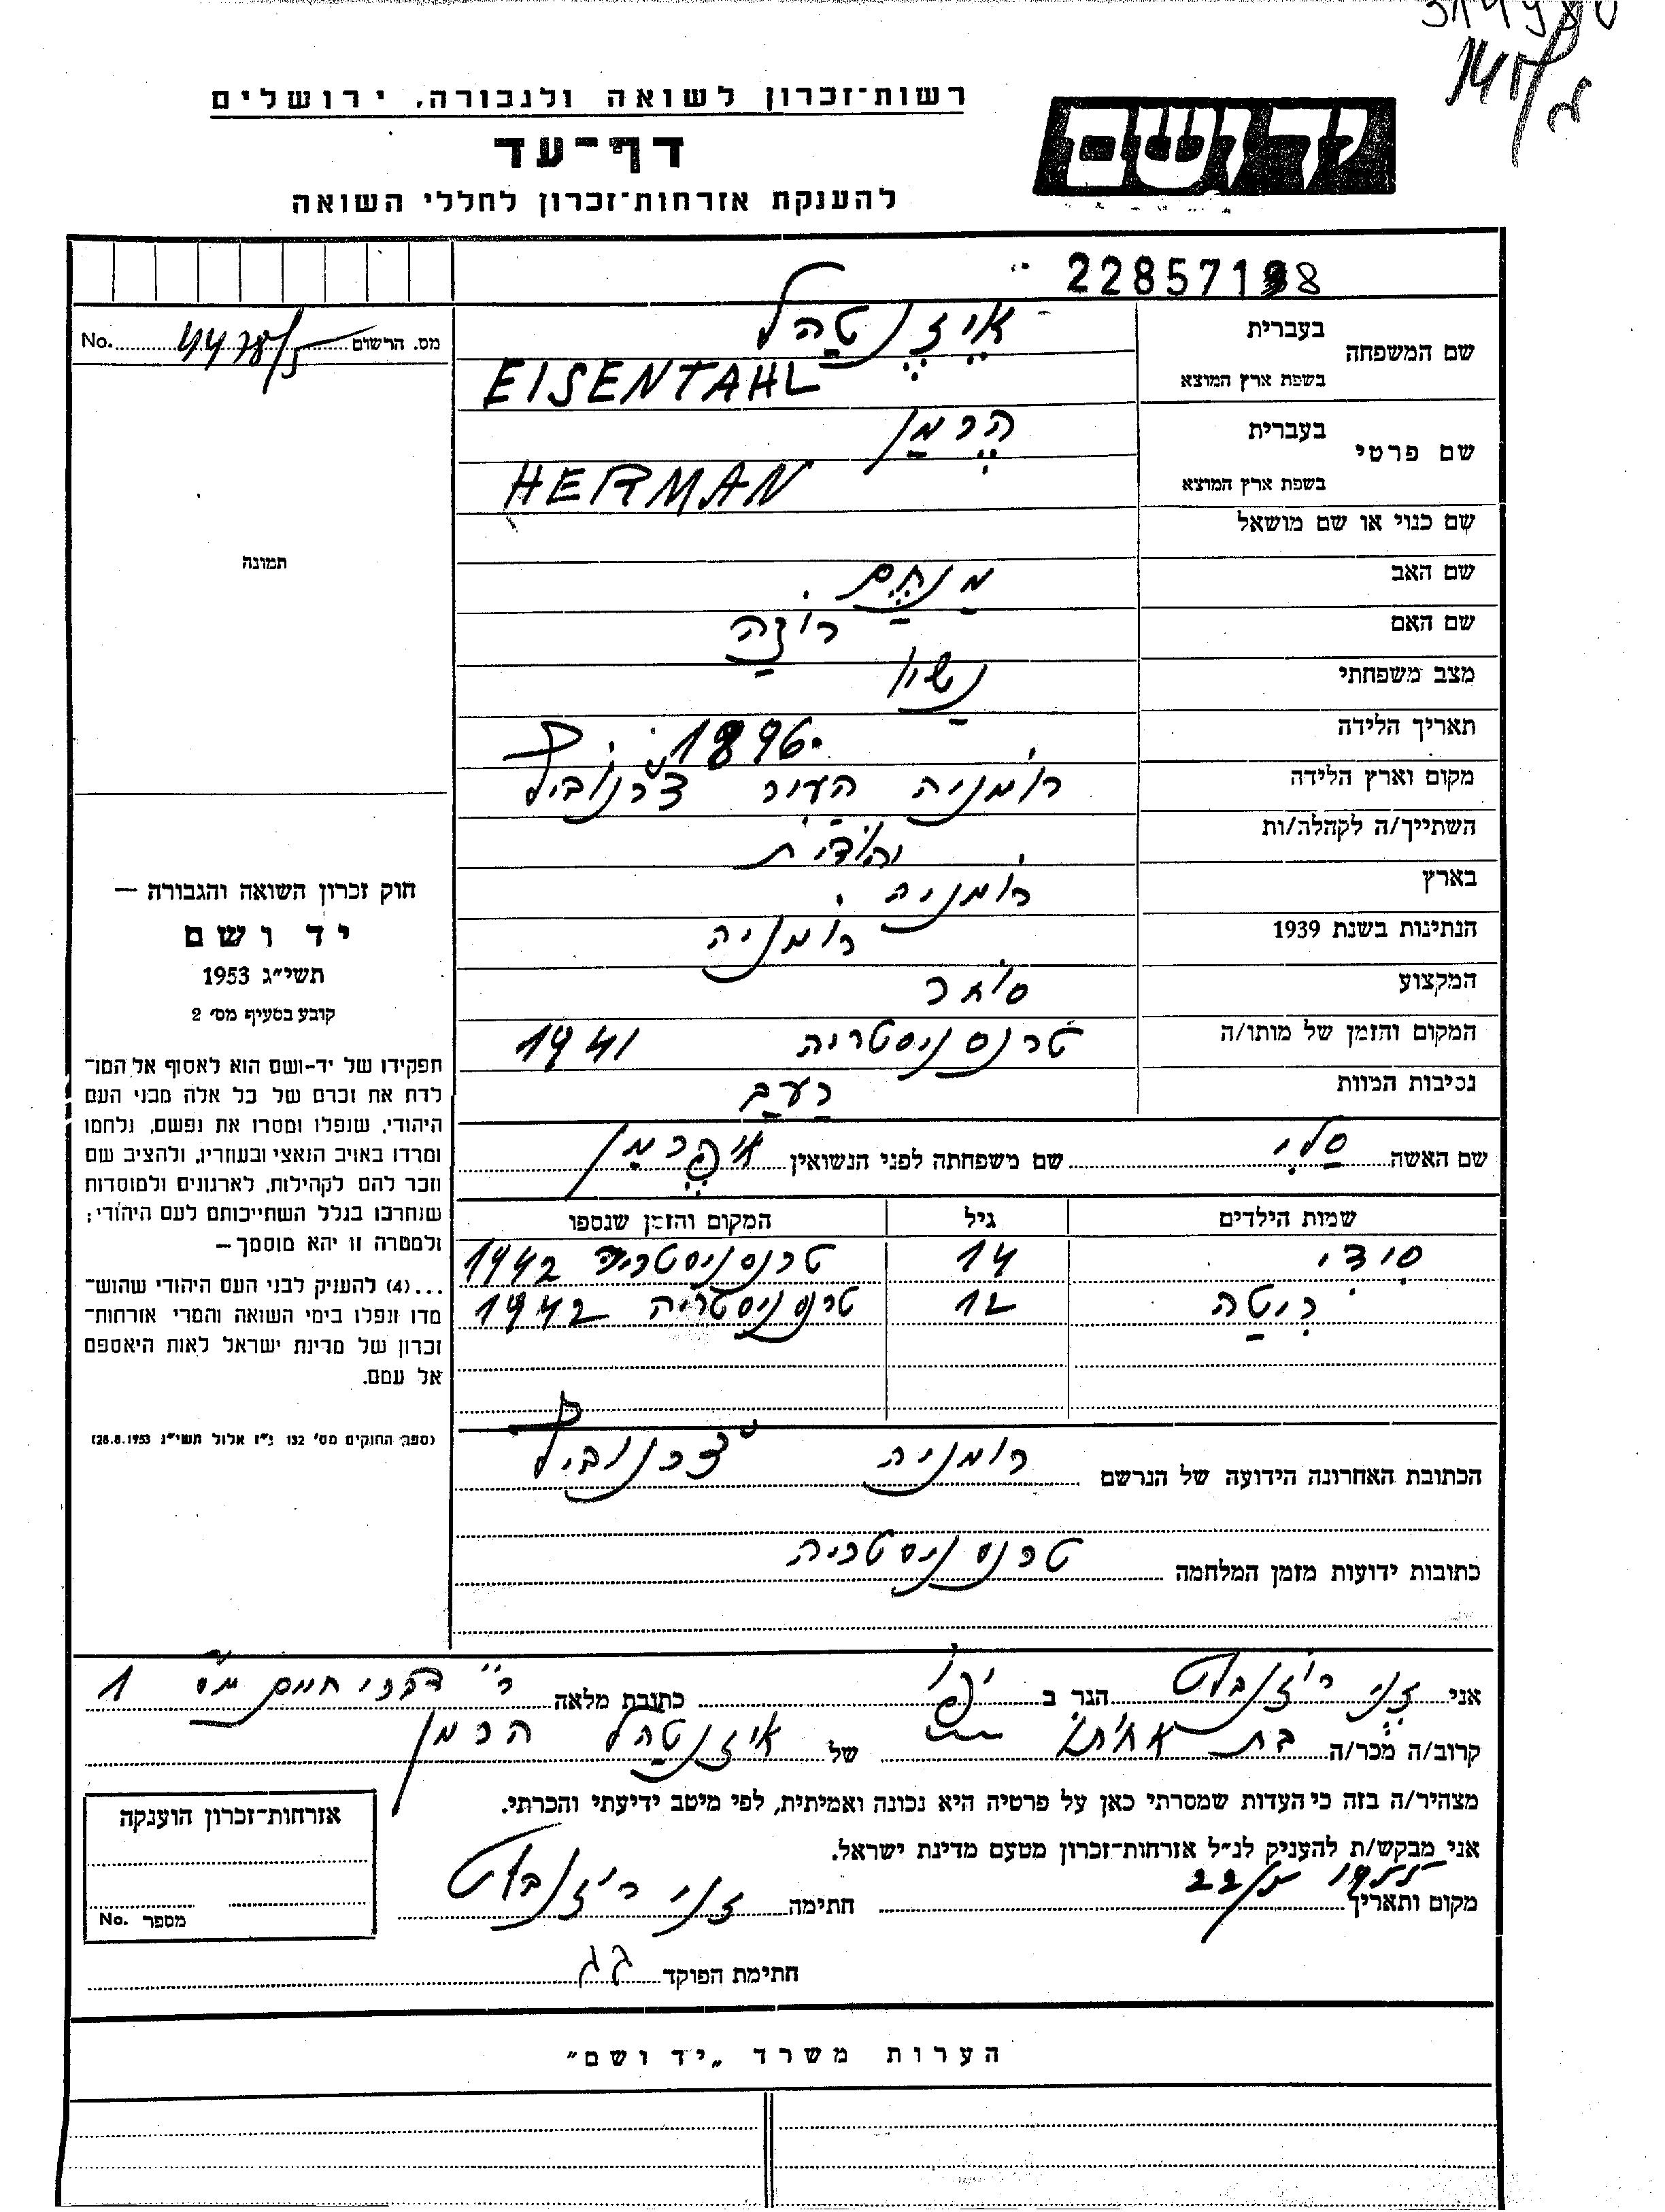 רשות־זכרון לשואה ולגבורה, ירושלים
דף־עד
להענקת אזרחות־זכרון לחללי השואה
יד ושם
שם המשפחה
בעברית אִיזֶנְטַהל
בשפת ארץ המוצא EISENTAHL
שם פרטי
בעברית הֶרמַן
בשפת ארץ המוצא HERMAN
שם כנוי או שם מושאל
שם האב מְנַחֵם
שם האם רוֹזַה
מצב משפחתי נָשׂוי
תאריך הלידה 1896
מקום וארץ הלידה רוֹמניה העיר צ'רנוֹביץ
השתייך/ה לקהלה/ות יהוּדִית
בארץ רוֹמניה
הנתינות בשנת 1939 רוֹמניה
המקצוע סוֹחר
המקום והזמן של מותו/ה טרנסניסטריה 1941
נסיבות המוות רַעַב
שם האשה סַלי שם משפחתה לפני הנשואין
שמות הילדים גיל המקום והזמן שנספו
סִידִי 14 טרנסניסטריה 1942
רִיטַה 12 טרנסניסטריה 1942
הכתובת האחרונה הידועה של הנרשם רומניה צ'רנוביץ
כתובות ידועות מזמן המלחמה טרנסניסטריה
מס. הרשום No.
תמונה
חוק זכרון השואה והגבורה —
יד ושם
תשי״ג 1953
קובע בסעיף מס׳ 2
תפקידו של יד-ושם הוא לאסוף אל המו־
לדת את זכרם של כל אלה מבני העם
היהודי, שנפלו ומסרו את נפשם, נלחמו
ומרדו באויב הנאצי ובעוזריו, ולהציב שם
וזכר להם לקהילות, לארגונים ולמוסדות
שנחרבו בגלל השתייכותם לעם היהודי;
ולמטרה זו יהא מוסמך —
...(4) להעניק לבני העם היהודי שהוש־
מדו ונפלו בימי השואה והמרי אזרחות־
זכרון של מדינת ישראל לאות היאספם
אל עמם.
(ספר החוקים מס׳ 132 י״ז אלול תשי״ג 28.8.1953)
אני ז'ני רוֹזנבלט הגר ב יפוֹ כתובת מלאה 1
קרוב/ה מכר/ה בת אחוֹתוֹ של איזנטהל הרמן
מצהיר/ה בזה כי העדות שמסרתי כאן על פרטיה היא נכונה ואמיתית, לפי מיטב ידיעתי והכרתי.
אני מבקש/ת להעניק לנ״ל אזרחות־זכרון מטעם מדינת ישראל.
מקום ותאריך 22/5 1955 חתימה ז'ני רוֹזנבלט
חתימת הפוקד
אזרחות־זכרון הוענקה
מספר No.
הערות משרד „יד ושם״